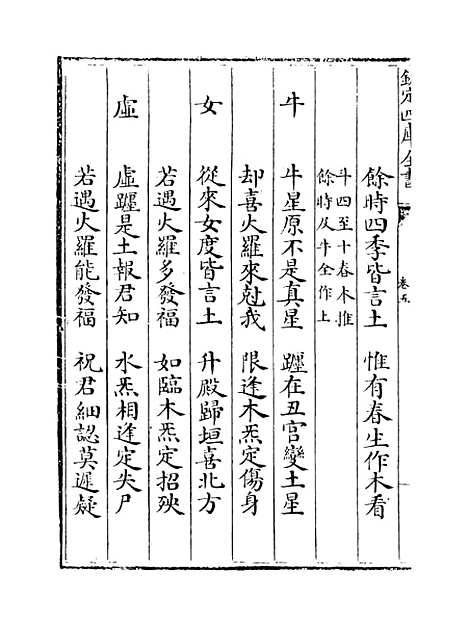 欽定四庫全書
卷五
餘時四季皆言土 惟有春生作木看
斗四至十春木推
餘時及牛全作上
牛 牛星原不是真星 躔在丑宫變土星
却喜火羅來尅我 限逢木炁定傷身
女 從來女度皆言土 升殿歸垣喜北方
若遇火羅多發福 如臨木炁定招殃
虛 虛躔是土報君知 水炁相逢定失尸
若遇火羅能發福 祝君細認莫遲疑